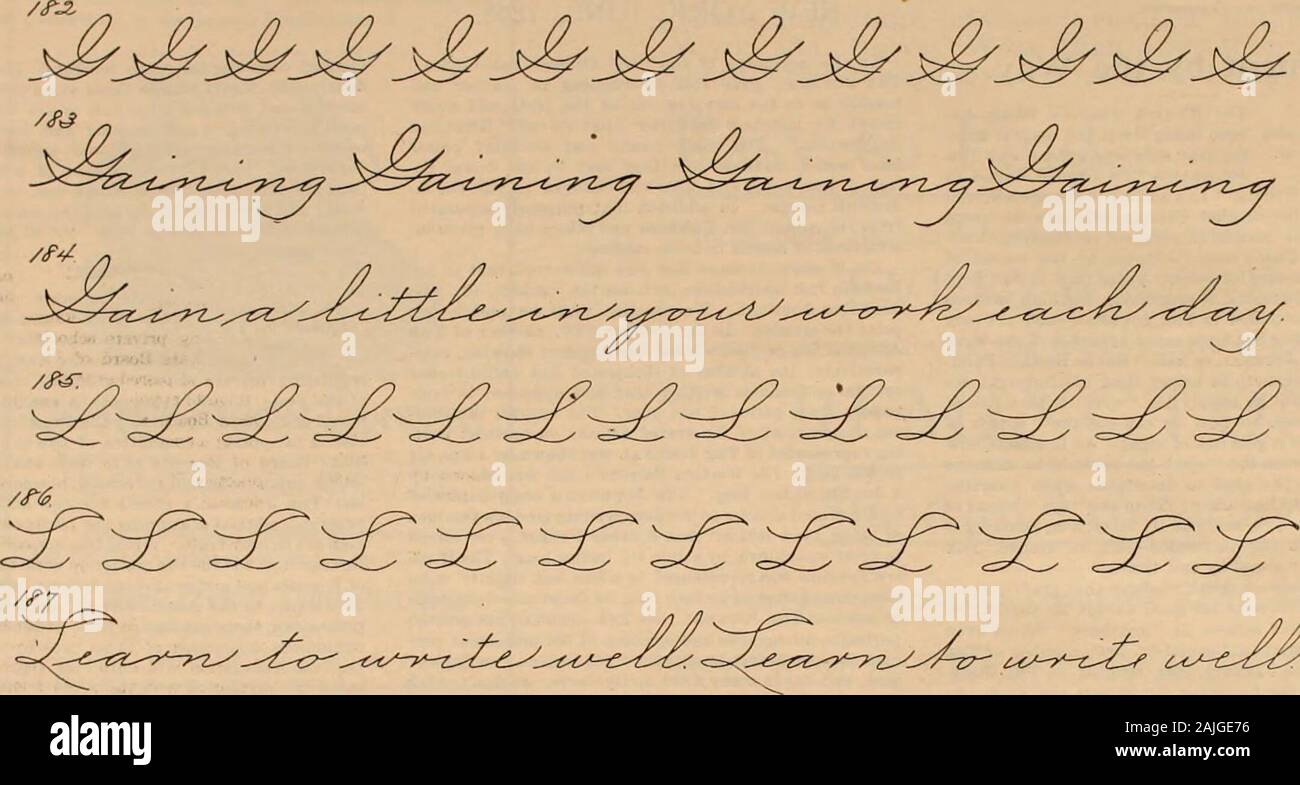 182
G G G G G G G G G G G G G
183
Gaining Gaining Gaining Gaining
184
Gain a little in your work each day.
185.
L L L L L L L L L L L L L
186.
L L L L L L L L L L L L
187
Learn to write well. Learn to write well.
alamy
Image ID: 2AJGE76
www.alamy.com